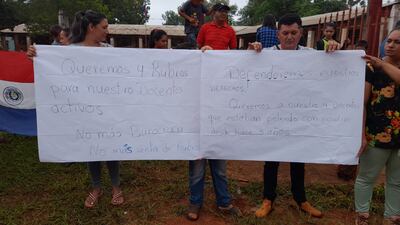 Queremos 4 Rubros
para nuestro Docente
activos
No más Burocracia
Nos más venta de Rubros
Defendemos nuestros
Derechos!
Queremos a nuestra Docente
que estaban peleado con
desde hace 5 años